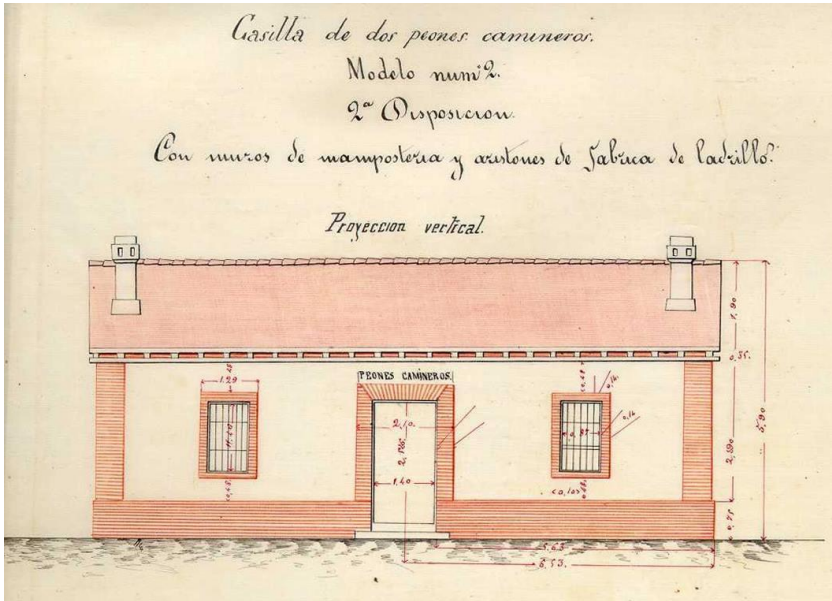 Casilla de dos peones camineros.
Modelo num° 2.
2ª Disposicion.
Con muros de mamposteria y aristones de fabrica de ladrillo.
Proyeccion vertical.
PEONES CAMINEROS.
1.29
2,10.
1.40
0,16
0,16
0,35.
5,90
2,90
5.63
6.53.